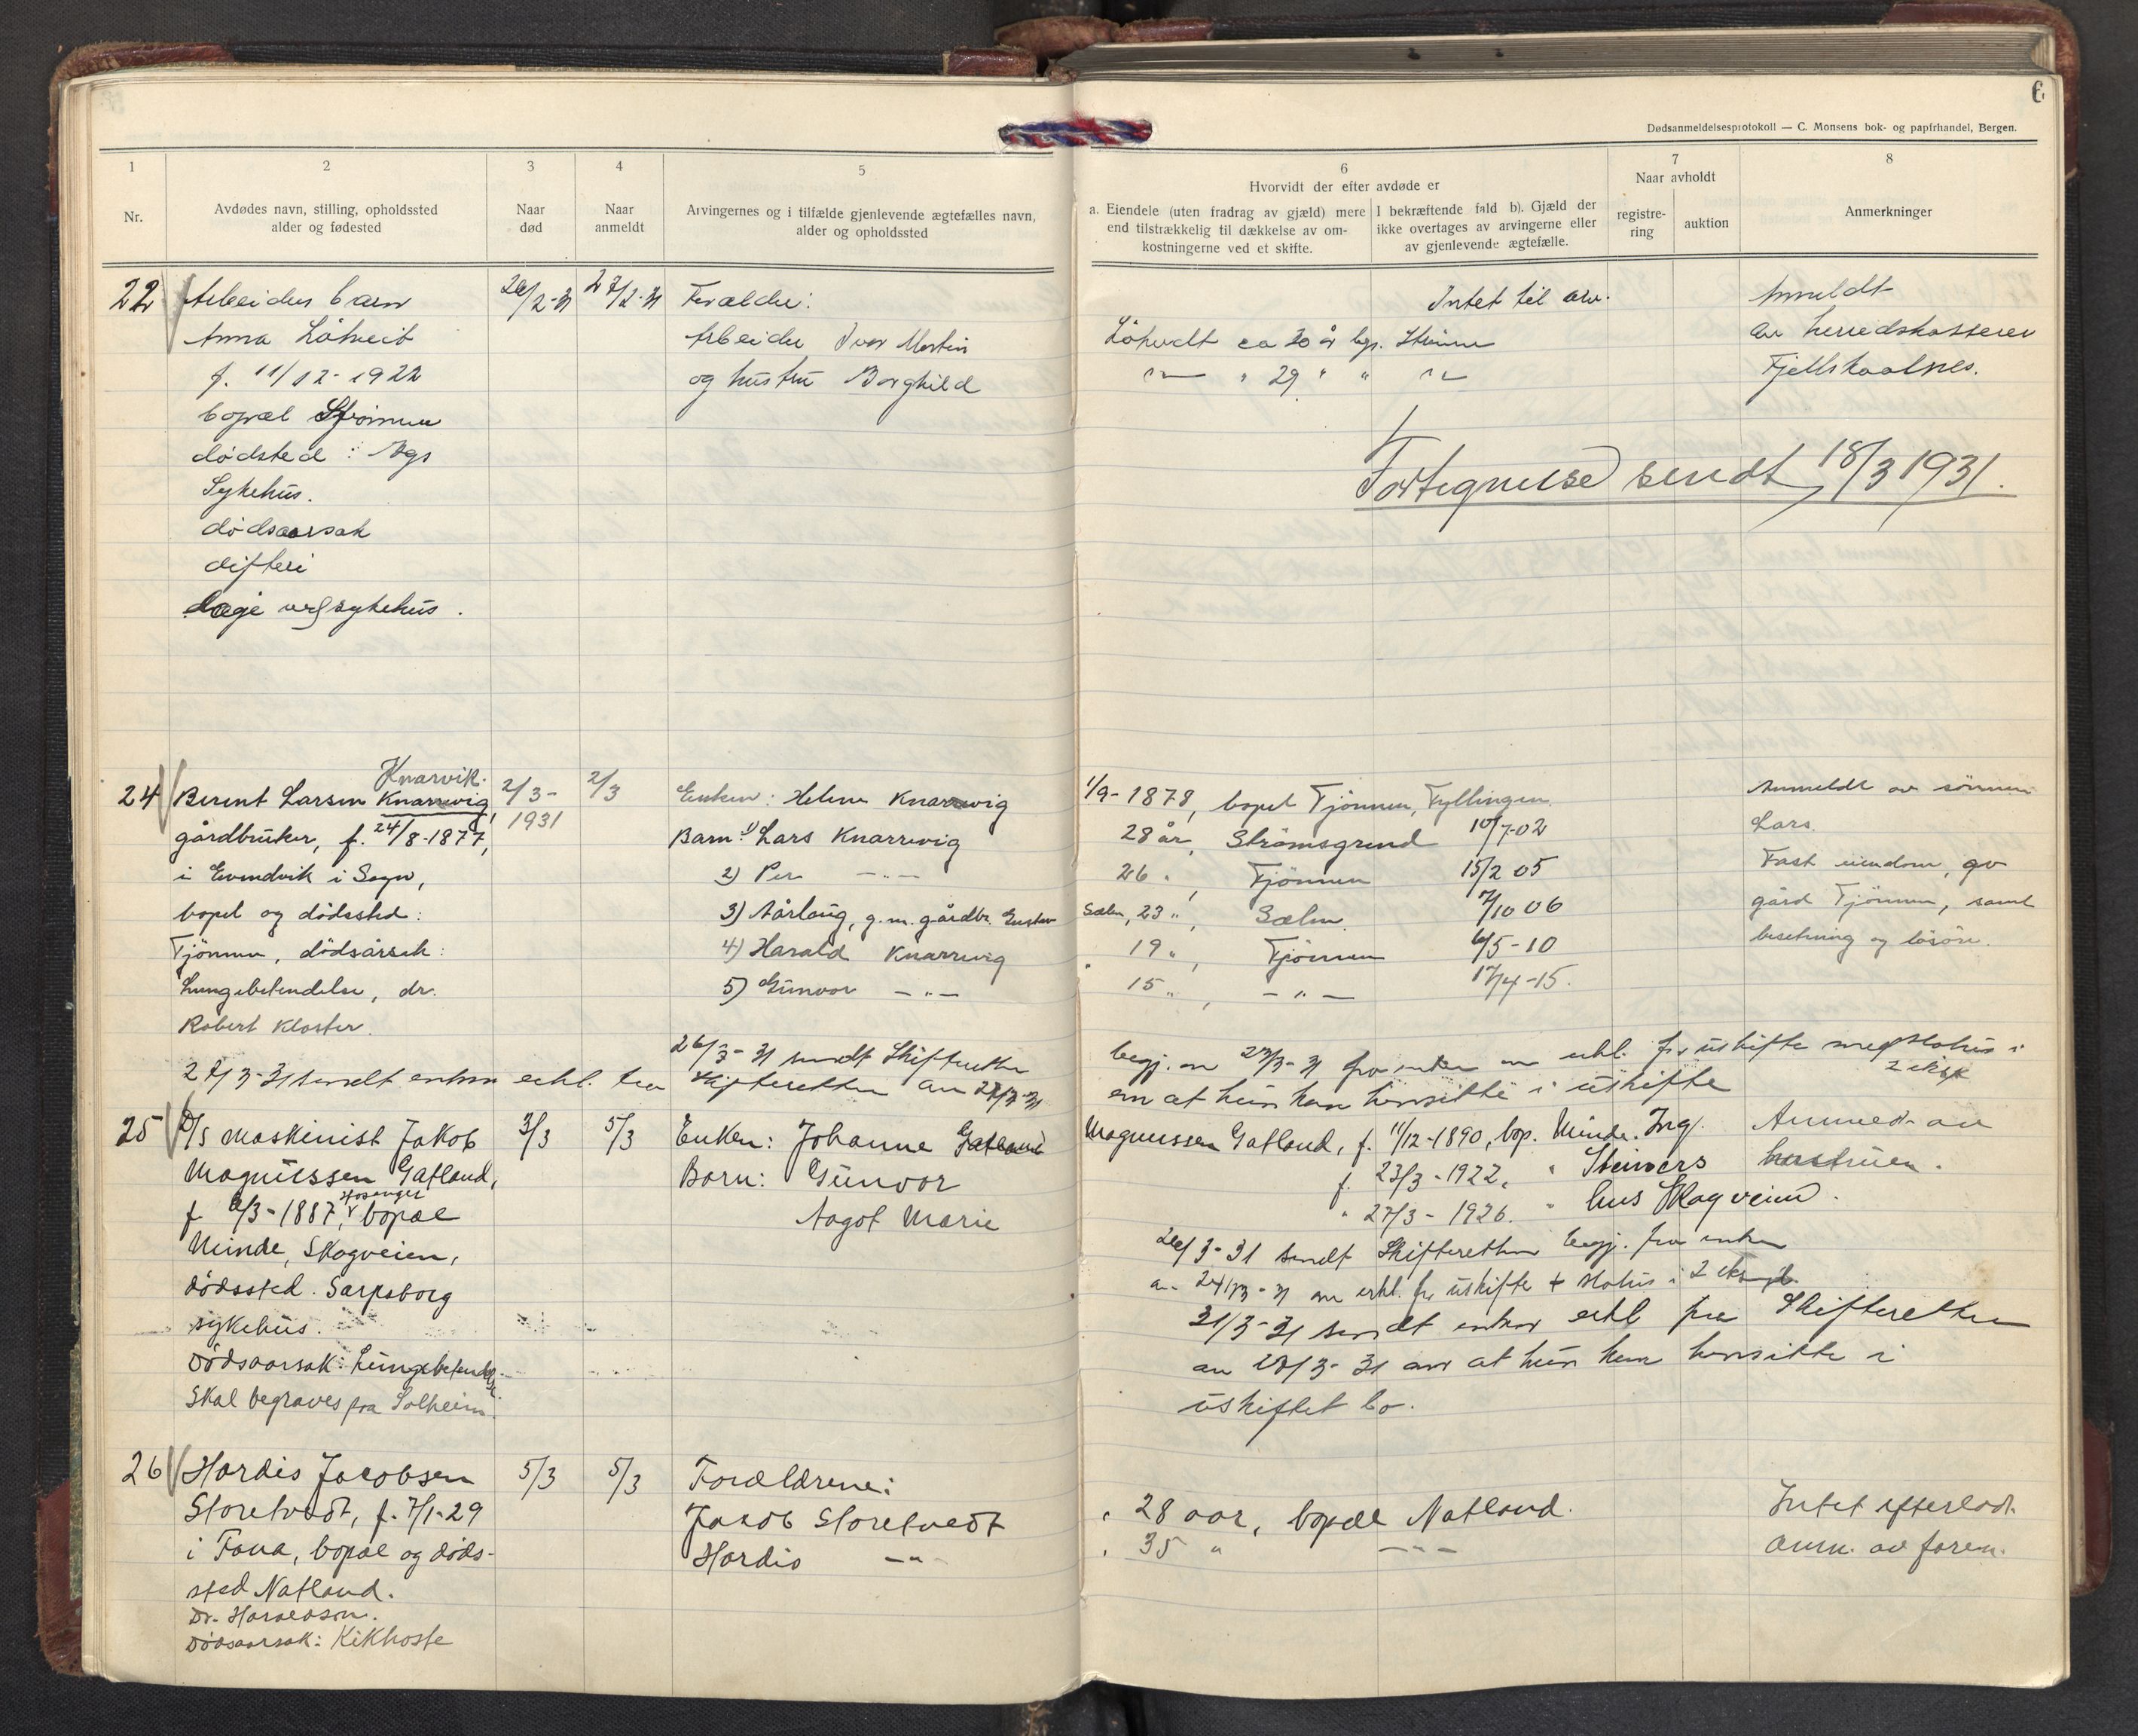 6
Dødsanmeldelsesprotokoll — C. Monsens bok- og papirhandel, Bergen.
1
Nr.
2
Avdødes navn, stilling, opholdssted
alder og fødested
3
Naar
død
4
Naar
anmeldt
5
Arvingernes og i tilfælde gjenlevende ægtefælles navn,
alder og opholdssted
6
Hvorvidt der efter avdøde er
a. Eiendele (uten fradrag av gjæld) mere
end tilstrækkelig til dækkelse av om-
kostningerne ved et skifte.
I bekræftende fald b). Gjæld der
ikke overtages av arvingerne eller
av gjenlevende ægtefælle.
7
Naar avholdt
registre-
ring
auktion
8
Anmerkninger
22
Arbeider barn
Anna
f. 11/12-1922
bopæl
dødsted :
Sykehus.
dødsaarsak
difteri
sykehus.
26/2-31
27/2-31
Forælder:
Arbeider Ivar Martin
og hustru Borghild
Intet til arv.
ca 30 år
" 29 " "
Anmeldt
av herredskasserer
Fjellskaalnes.
Fortegnelse sendt 18/3 1931.
24
Knarvik.
Berent Larsen Knarrevig,
gårdbruker, f. 24/8-1877,
i Evindvik i Sogn,
bopel og dødssted:
Tjönnen, dödsårsak:
Lungebetendelse, dr.
Robert Kloster.
2/3-
1931
2/3
Enken: Helene Knarrevig
Barn: 1) Lars Knarrevig
2) Per — " —
3) Aårlaug, g. m. gårdbr. Gustav
4) Harald Knarrevig
5) Gunvor — " —
1/9-1878, bopel Tjönnen, Fyllingen.
28 år, Strömsgrend 10/7-02
26 ", Tjönnen 15/2 05
Sælen, 23 ", Sælen 7/10 06
19 ", Tjönnen 6/5-10
15 ", — " — 17/4-15.
Anmeldt av sönnen
Lars.
Fast eiendom,
gård Tjönnen, samt
besetning og lösöre.
26/3-31 sendt Skifteretten
begj. av 23/3-31 fra enken om erkl. for uskifte med status i
2 eks.
27/3-31 sendt enken erkl. fra Skifteretten av 27/3-31
om at hun kan hensitte i uskifte
25
D/S maskinist Jakob
Magnussen Gatland,
f 6/3-1887, bopæl
Hosanger
Minde, Skogveien,
dödssted. Sarpsborg
sykehus.
Dödsaarsak: Lungebetendelse.
Skal begraves fra Solheim.
3/3
5/3
Enken: Johanne Gatland
Barn: Gunvor
Aagot Marie
Magnussen Gatland, f. 11/12-1890, bop. Minde. Ing.
f. 23/3-1922, " Steivers
" 27/3-1926. " hus Skogveien.
Anmed. av
hustruen.
26/3-31 sendt Skifteretten begj. fra enken
av 24/3-31 om erkl. for uskifte + status i 2 eksempl.
31/3-31 sendt enken erkl fra Skifteretten
av 28/3-31 om at hun kan hensitte i
uskiftet bo.
26
Hardis Jacobsen
Storetvedt, f. 7/1-29
i Fana, bopæl og døds-
sted Natland.
Dr. Haraldson.
Dödsaarsak: Kikhoste
5/3
5/3
Forældrene:
Jakob Storetvedt
Hardis — " —
, 28 aar, bopæl Natland.
, 35 " — " —
Intet efterladt.
Anm. av faren.